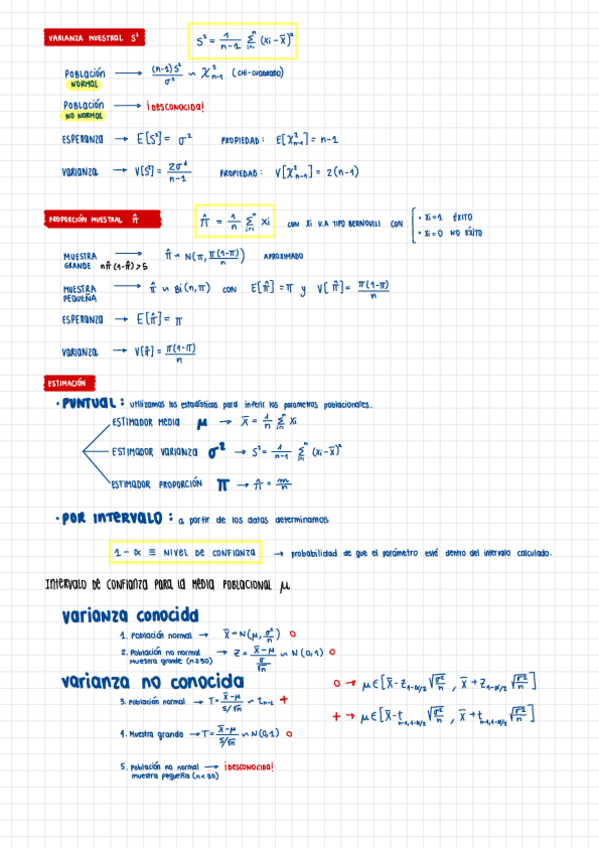 VARIANZA MUESTRAL S² S² = 1/(n-1) Σⁿᵢ₌₁ (xi - x̄)²
POBLACIÓN NORMAL → (n-1)S²/σ² ∽ χ²ₙ₋₁ (CHI-CUADRADO)
POBLACIÓN NO NORMAL → ¡DESCONOCIDA!
ESPERANZA → E[S²] = σ² PROPIEDAD: E[χ²ₙ₋₁] = n-1
VARIANZA → V[S²] = 2σ⁴/(n-1) PROPIEDAD: V[χ²ₙ₋₁] = 2(n-1)
PROPORCIÓN MUESTRAL π̂ π̂ = 1/n Σⁿᵢ₌₁ xi CON Xi V.A TIPO BERNOULLI CON
• Xi=1 ÉXITO
• Xi=0 NO ÉXITO
MUESTRA GRANDE nπ̂(1-π̂)>5 → π̂ ∽ N(π, π(1-π)/n) APROXIMADO
MUESTRA PEQUEÑA → π̂ ∽ Bi(n,π) CON E[π̂] = π y V[π̂] = π(1-π)/n
ESPERANZA → E[π̂] = π
VARIANZA → V[π̂] = π(1-π)/n
ESTIMACIÓN
• PUNTUAL: utilizamos los estadísticos para inferir los parámetros poblacionales.
ESTIMADOR MEDIA μ → x̄ = 1/n Σⁿᵢ₌₁ xi
ESTIMADOR VARIANZA σ² → S² = 1/(n-1) Σⁿᵢ₌₁ (xi - x̄)²
ESTIMADOR PROPORCIÓN π → π̂ = m/n
• POR INTERVALO: a partir de los datos determinamos
1 - α ≡ NIVEL DE CONFIANZA → probabilidad de que el parámetro esté dentro del intervalo calculado.
INTERVALO DE CONFIANZA PARA LA MEDIA POBLACIONAL μ
varianza conocida
1. Población normal → x̄ ∽ N(μ, σ²/n) O
2. Población no normal Muestra grande (n≥30) → Z = (x̄-μ)/(σ/√n) ∽ N(0,1) O
varianza no conocida
O → μ∈[x̄ - z₁₋α/₂ √(σ²/n), x̄ + z₁₋α/₂ √(σ²/n)]
3. Población normal → T = (x̄-μ)/(S/√n) ∽ tₙ₋₁ +
+ → μ∈[x̄ - tₙ₋₁,₁₋α/₂ √(σ²/n), x̄ + tₙ₋₁,₁₋α/₂ √(σ²/n)]
4. Muestra grande → T = (x̄-μ)/(S/√n) ∽ N(0,1) O
5. Población no normal → ¡DESCONOCIDA!
muestra pequeña (n<30)